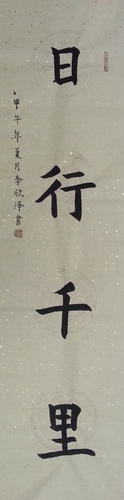 日行千里
甲午年夏月李欣泽书